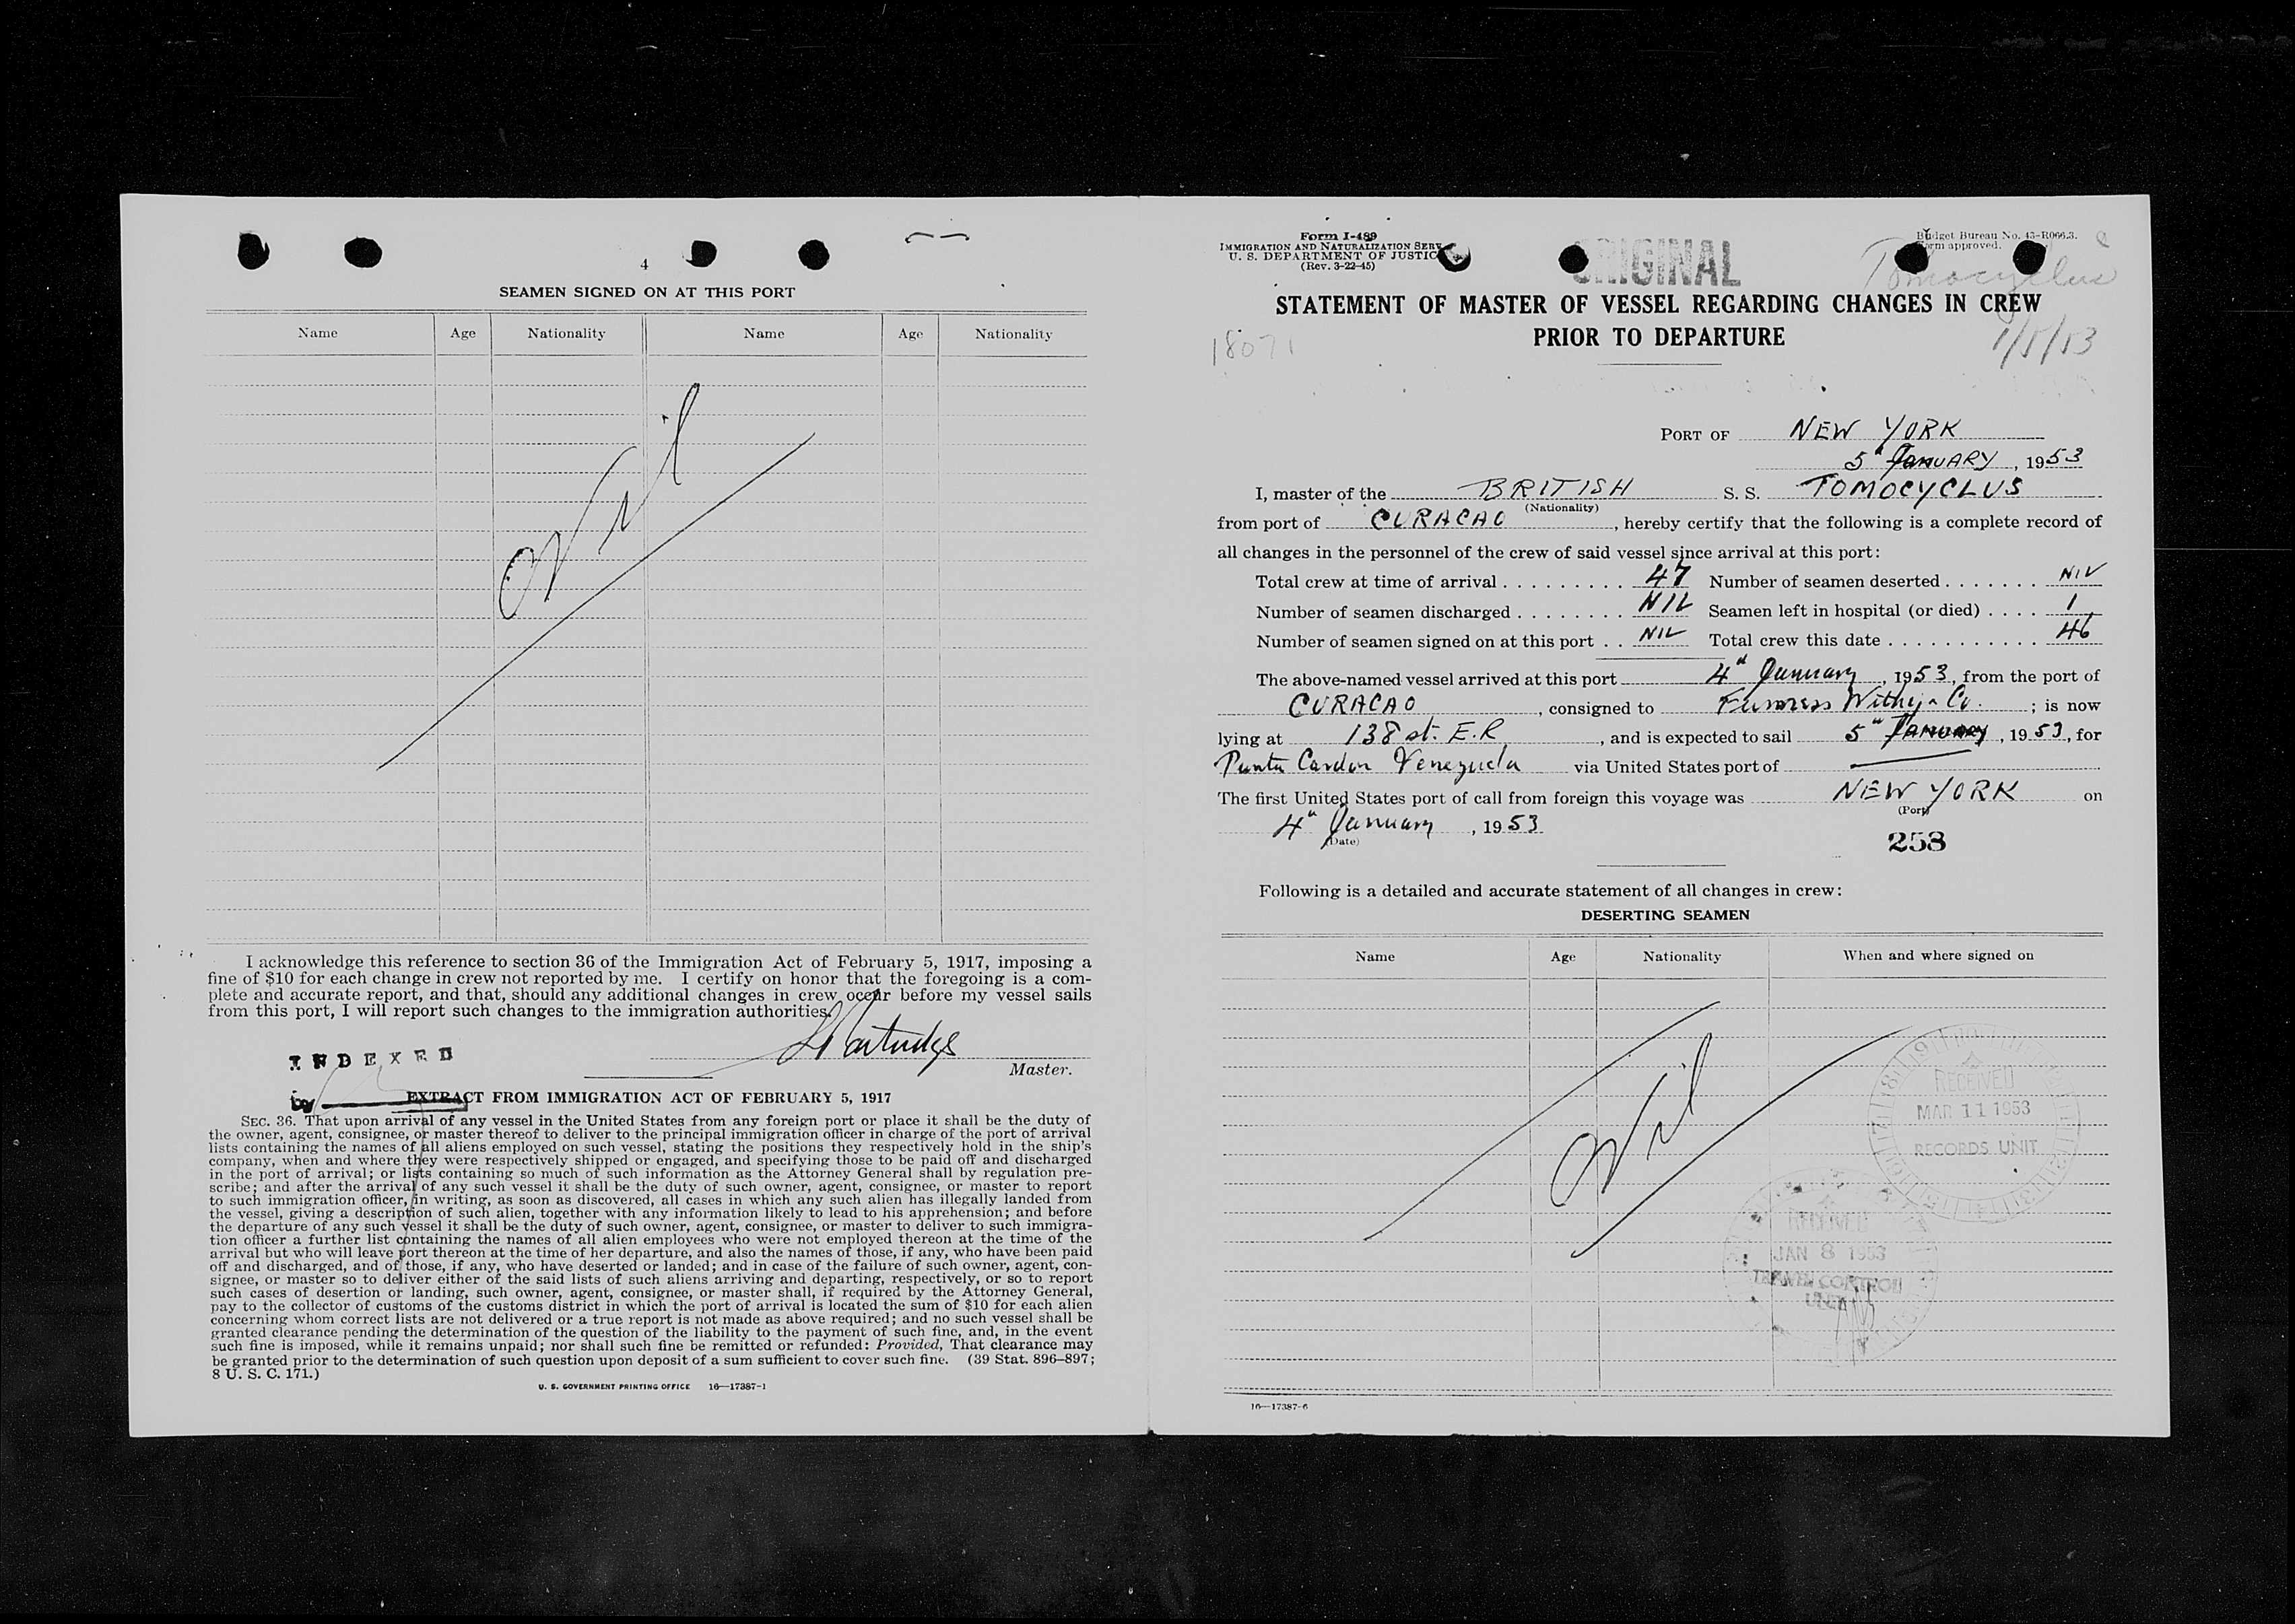 4
SEAMEN SIGNED ON AT THIS PORT
Name Age Nationality Name Age Nationality
Nil
I acknowledge this reference to section 36 of the Immigration Act of February 5, 1917, imposing a
fine of $10 for each change in crew not reported by me. I certify on honor that the foregoing is a com-
plete and accurate report, and that, should any additional changes in crew occur before my vessel sails
from this port, I will report such changes to the immigration authorities.
Master.
INDEXED
by
EXTRACT FROM IMMIGRATION ACT OF FEBRUARY 5, 1917
SEC. 36. That upon arrival of any vessel in the United States from any foreign port or place it shall be the duty of
the owner, agent, consignee, or master thereof to deliver to the principal immigration officer in charge of the port of arrival
lists containing the names of all aliens employed on such vessel, stating the positions they respectively hold in the ship's
company, when and where they were respectively shipped or engaged, and specifying those to be paid off and discharged
in the port of arrival; or lists containing so much of such information as the Attorney General shall by regulation pre-
scribe; and after the arrival of any such vessel it shall be the duty of such owner, agent, consignee, or master to report
to such immigration officer, in writing, as soon as discovered, all cases in which any such alien has illegally landed from
the vessel, giving a description of such alien, together with any information likely to lead to his apprehension; and before
the departure of any such vessel it shall be the duty of such owner, agent, consignee, or master to deliver to such immigra-
tion officer a further list containing the names of all alien employees who were not employed thereon at the time of the
arrival but who will leave port thereon at the time of her departure, and also the names of those, if any, who have been paid
off and discharged, and of those, if any, who have deserted or landed; and in case of the failure of such owner, agent, con-
signee, or master so to deliver either of the said lists of such aliens arriving and departing, respectively, or so to report
such cases of desertion or landing, such owner, agent, consignee, or master shall, if required by the Attorney General,
pay to the collector of customs of the customs district in which the port of arrival is located the sum of $10 for each alien
concerning whom correct lists are not delivered or a true report is not made as above required; and no such vessel shall be
granted clearance pending the determination of the question of the liability to the payment of such fine, and, in the event
such fine is imposed, while it remains unpaid; nor shall such fine be remitted or refunded: Provided, That clearance may
be granted prior to the determination of such question upon deposit of a sum sufficient to cover such fine. (39 Stat. 896–897;
8 U. S. C. 171.)
U. S. GOVERNMENT PRINTING OFFICE 16—17387-1
Form I-489
IMMIGRATION AND NATURALIZATION SERV
U. S. DEPARTMENT OF JUSTIC
(Rev. 3-22-45)
ORIGINAL
Budget Bureau No. 43-R066.3.
Form approved.
Tomocyclus
STATEMENT OF MASTER OF VESSEL REGARDING CHANGES IN CREW
PRIOR TO DEPARTURE
18071
1/5/53
PORT OF NEW YORK
5" JANUARY, 1953
I, master of the BRITISH S. S. TOMOCYCLUS
(Nationality)
from port of CURACAO, hereby certify that the following is a complete record of
all changes in the personnel of the crew of said vessel since arrival at this port:
Total crew at time of arrival . . . . . . . . . 47 Number of seamen deserted . . . . . . . NIL
Number of seamen discharged . . . . . . . . NIL Seamen left in hospital (or died) . . . . 1
Number of seamen signed on at this port . . NIL Total crew this date . . . . . . . . . . . . 46
The above-named vessel arrived at this port 4" January, 1953, from the port of
CURACAO, consigned to Furness Withy & Co. ; is now
lying at 138 st. E.R, and is expected to sail 5" JANUARY, 1953, for
Punta Cardon Venezuela via United States port of
The first United States port of call from foreign this voyage was NEW YORK on
(Port)
4" January, 1953
(Date)
258
Following is a detailed and accurate statement of all changes in crew:
DESERTING SEAMEN
Name Age Nationality When and where signed on
Nil
RECEIVED
MAR 11 1953
RECORDS UNIT
RECEIVED
JAN 8 1953
TRAVEL CONTROL
UNIT
16—17387-6